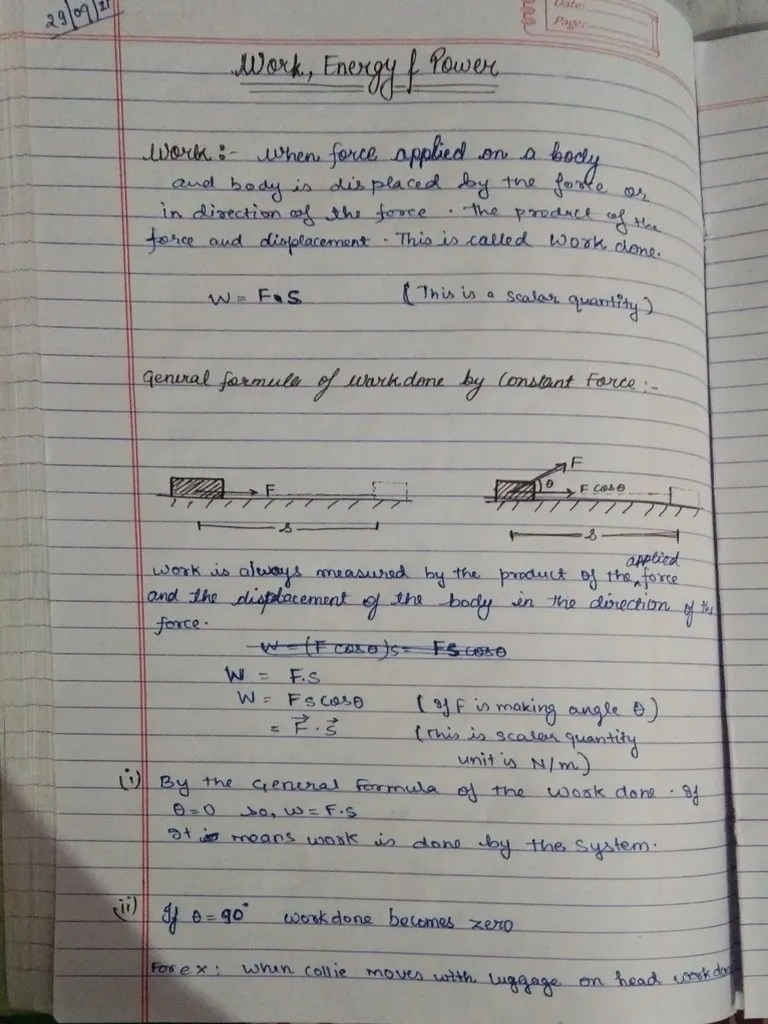 29/09/21
Date:
Page:
Work, Energy & Power
Work :- When force applied on a body
and body is displaced by the force or
in direction of the force. The product of the
force and displacement. This is called Work done.
W = F•S (This is a scalar quantity)
General formula of workdone by Constant Force :-
F
S
F
θ
F cosθ
S
applied
Work is always measured by the product of the ^ force
and the displacement of the body in the direction of the
force.
W = (F cosθ)s = Fs cosθ
W = F.S
W = Fs cosθ (If F is making angle θ)
= F⃗ . s⃗ (This is scalar quantity
unit is N/m.)
(i) By the General Formula of the work done. If
θ=0 so, W=F.S
It is means work is done by the System.
(ii) If θ=90° workdone becomes zero
For ex: When collie moves with luggage on head work do